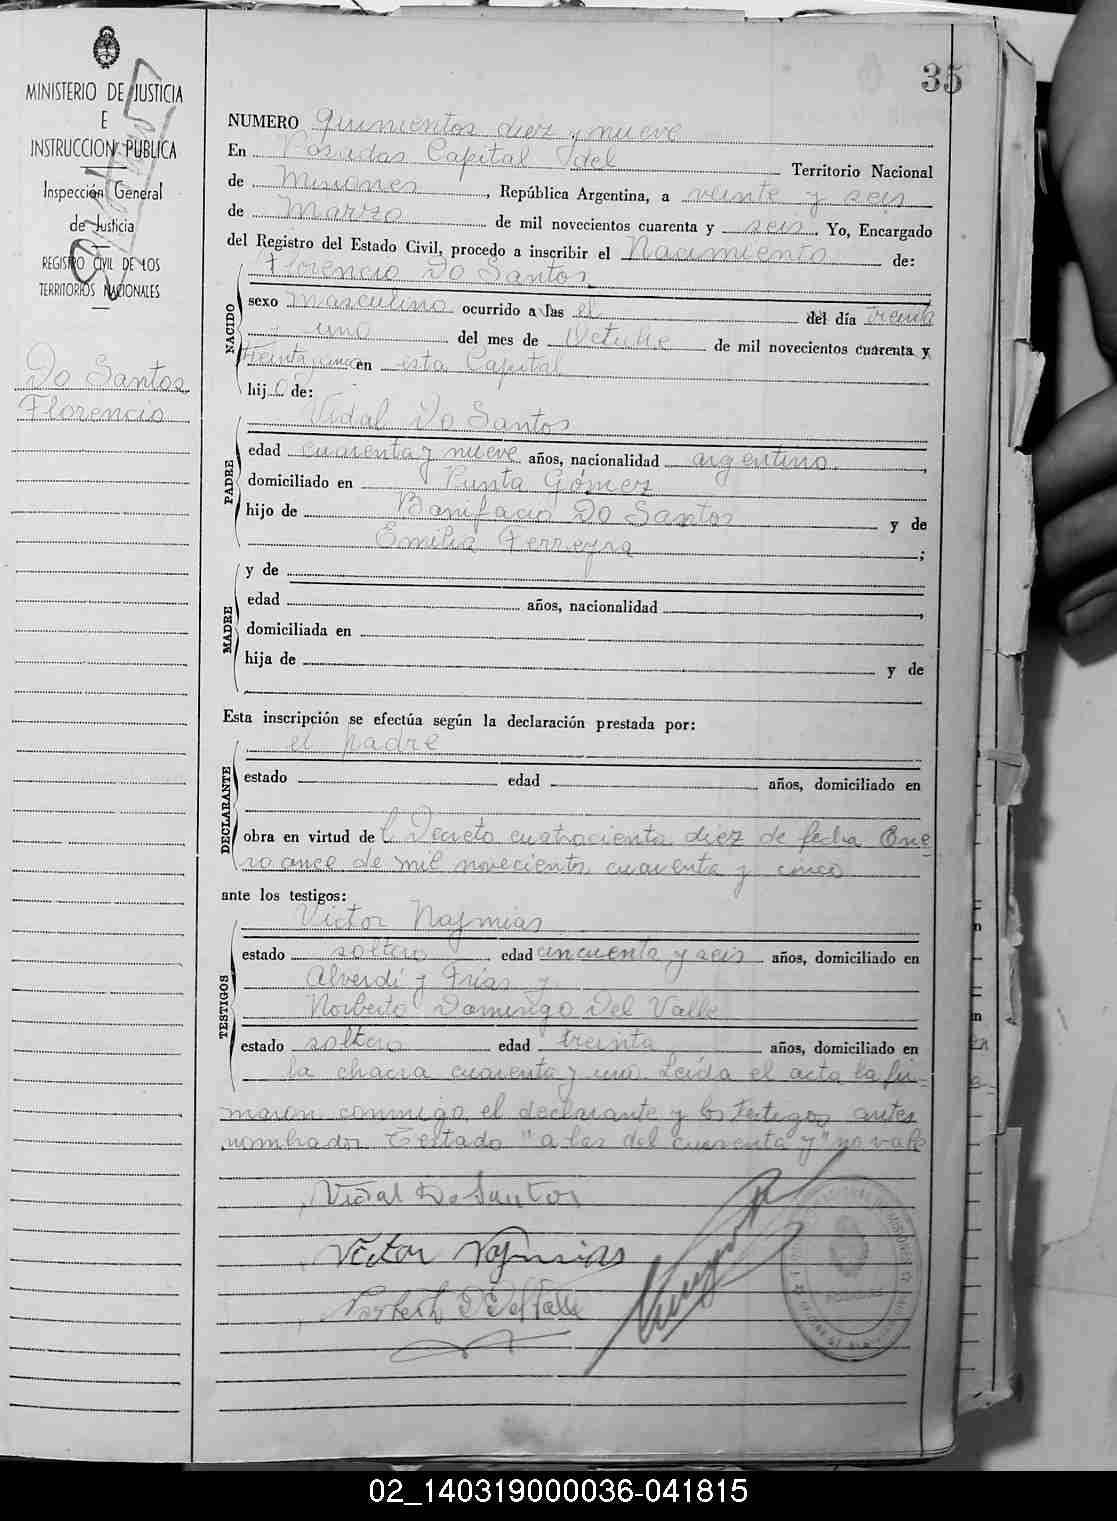 35
MINISTERIO DE JUSTICIA
E
INSTRUCCION PUBLICA
Inspección General
de Justicia
REGISTRO CIVIL DE LOS
TERRITORIOS NACIONALES
Do Santos
Florencio
NUMERO quinientos diez y nueve
En Posadas Capital del Territorio Nacional
de Misiones, República Argentina, a veinte y seis
de Marzo de mil novecientos cuarenta y seis Yo, Encargado
del Registro del Estado Civil, procedo a inscribir el Nacimiento de:
Florencio Do Santos
NACIDO
sexo masculino ocurrido a las el del día treinta
y uno del mes de Octubre de mil novecientos cuarenta y
treinta y uno en esta Capital
hijo de:
PADRE
Vidal Do Santos
edad cuarenta y nueve años, nacionalidad argentino,
domiciliado en Punta Gómez
hijo de Bonifacio Do Santos y de
Emilia Ferreyra;
MADRE
y de
edad años, nacionalidad ,
domiciliada en
hija de y de
Esta inscripción se efectúa según la declaración prestada por:
DECLARANTE
el padre
estado edad años, domiciliado en
obra en virtud del Decreto cuatrocientos diez de fecha Ene-
ro once de mil novecientos cuarenta y cinco
ante los testigos:
TESTIGOS
Victor Najmias
estado soltero edad cincuenta y seis años, domiciliado en
Alverdi y Frias y
Norberto Domingo Del Valle
estado soltero edad treinta años, domiciliado en
la chacra cuarenta y uno. Leída el acta la fir-
maron conmigo el declarante y los testigos antes
nombrados Testado "a las del cuarenta y" no vale
Vidal Do Santos
Victor Najmias
Norberto D Del Valle
POSADAS
02_140319000036-041815